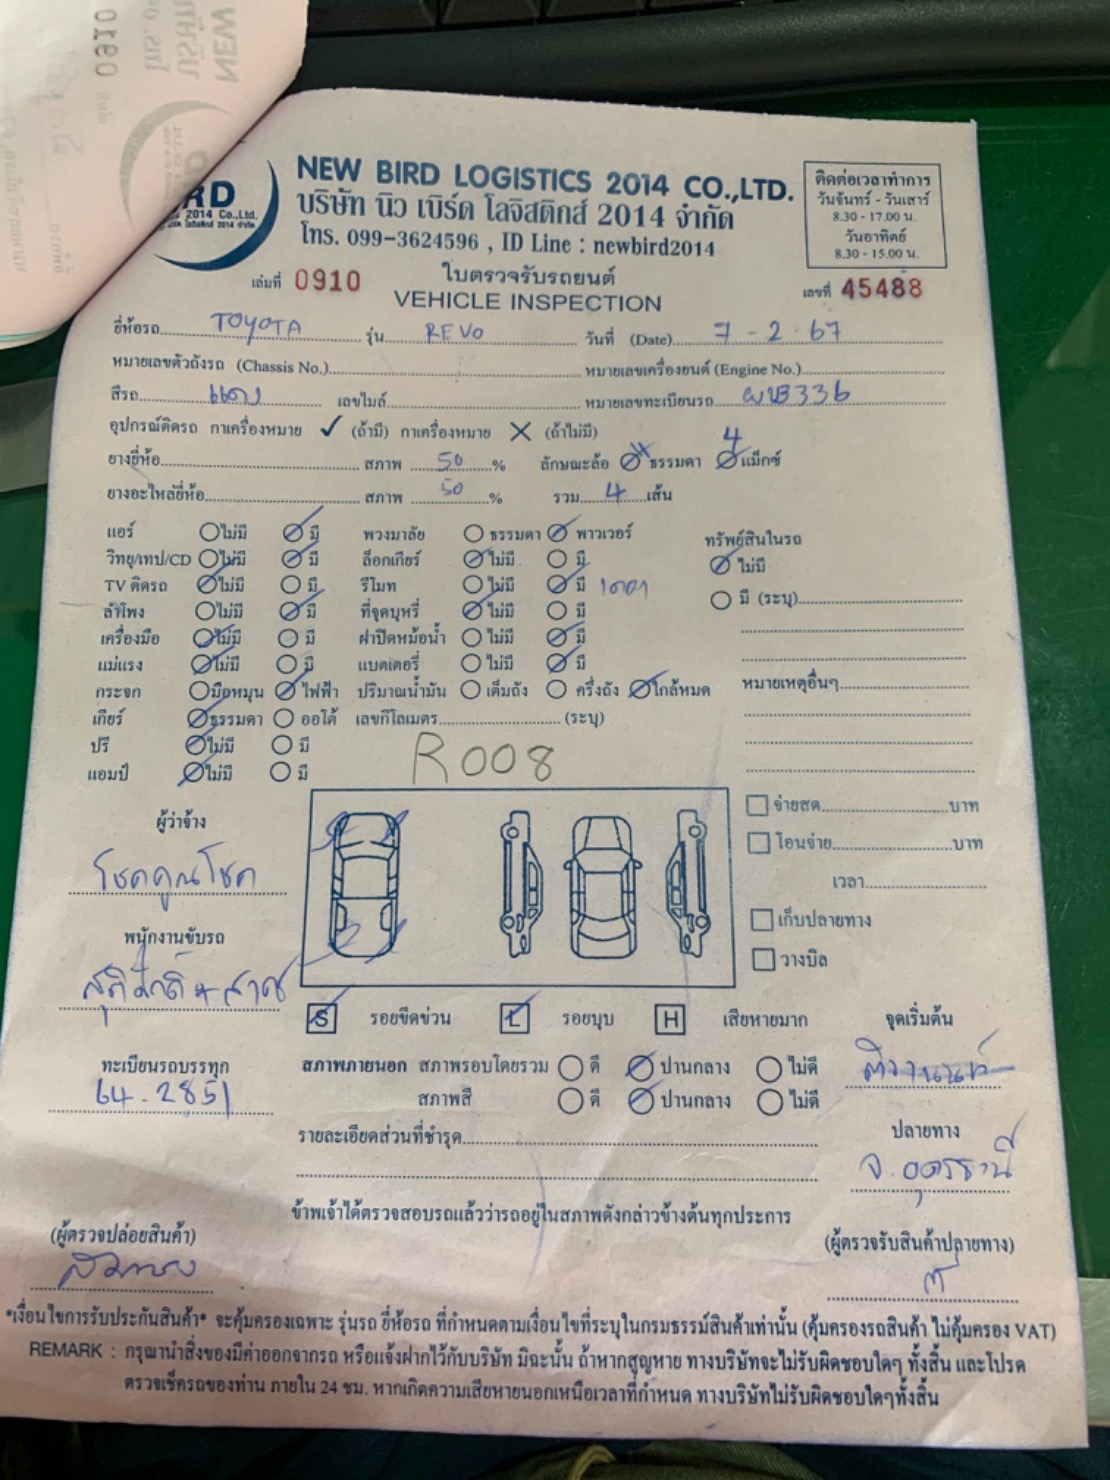 0910
NEW BIRD LOGISTICS 2014 CO.,LTD.
บริษัท นิว เบิร์ด โลจิสติกส์ 2014 จำกัด
โทร. 099-3624596 , ID Line : newbird2014
ติดต่อเวลาทำการ
วันจันทร์ - วันเสาร์
8.30 - 17.00 น.
วันอาทิตย์
8.30 - 15.00 น.
RD
2014 Co.,Ltd.
เล่มที่ 0910
ใบตรวจรับรถยนต์
VEHICLE INSPECTION
เลขที่ 45488
ยี่ห้อรถ TOYOTA รุ่น REVO วันที่ (Date) 7 - 2 - 67
หมายเลขตัวถังรถ (Chassis No.) หมายเลขเครื่องยนต์ (Engine No.)
สีรถ แดง เลขไมล์ หมายเลขทะเบียนรถ ผบ3336
อุปกรณ์ติดรถ กาเครื่องหมาย ✓ (ถ้ามี) กาเครื่องหมาย X (ถ้าไม่มี)
ยางยี่ห้อ สภาพ 50 % ลักษณะล้อ ธรรมดา 4 แม็กซ์
ยางอะไหล่ยี่ห้อ สภาพ 50 % รวม 4 เส้น
แอร์ ไม่มี มี พวงมาลัย ธรรมดา พาวเวอร์ ทรัพย์สินในรถ
วิทยุ/เทป/CD ไม่มี มี ล็อกเกียร์ ไม่มี มี ไม่มี
TV ติดรถ ไม่มี มี รีโมท ไม่มี มี มี (ระบุ)
ลำโพง ไม่มี มี ที่จุดบุหรี่ ไม่มี มี
เครื่องมือ ไม่มี มี ฝาปิดหม้อน้ำ ไม่มี มี
แม่แรง ไม่มี มี แบตเตอรี่ ไม่มี มี
กระจก มือหมุน ไฟฟ้า ปริมาณน้ำมัน เต็มถัง ครึ่งถัง ใกล้หมด หมายเหตุอื่นๆ
เกียร์ ธรรมดา ออโต้ เลขกิโลเมตร (ระบุ)
ปรี ไม่มี มี
แอมป์ ไม่มี มี
R008
ผู้ว่าจ้าง
โชคคูณโชค
พนักงานขับรถ
ทะเบียนรถบรรทุก
64-2851
จ่ายสด บาท
โอนจ่าย บาท
เวลา
เก็บปลายทาง
วางบิล
S รอยขีดข่วน L รอยบุบ H เสียหายมาก
จุดเริ่มต้น
ติวานนท์
สภาพภายนอก สภาพรอบโดยรวม ดี ปานกลาง ไม่ดี
สภาพสี ดี ปานกลาง ไม่ดี
รายละเอียดส่วนที่ชำรุด
ปลายทาง
จ.อุดรธานี
ข้าพเจ้าได้ตรวจสอบรถแล้วว่ารถอยู่ในสภาพดังกล่าวข้างต้นทุกประการ
(ผู้ตรวจปล่อยสินค้า)
(ผู้ตรวจรับสินค้าปลายทาง)
*เงื่อนไขการรับประกันสินค้า* จะคุ้มครองเฉพาะ รุ่นรถ ยี่ห้อรถ ที่กำหนดตามเงื่อนไขที่ระบุในกรมธรรม์สินค้าเท่านั้น (คุ้มครองรถสินค้า ไม่คุ้มครอง VAT)
REMARK : กรุณานำสิ่งของมีค่าออกจากรถ หรือแจ้งฝากไว้กับบริษัท มิฉะนั้น ถ้าหากสูญหาย ทางบริษัทจะไม่รับผิดชอบใดๆ ทั้งสิ้น และโปรด
ตรวจเช็ครถของท่าน ภายใน 24 ชม. หากเกิดความเสียหายนอกเหนือเวลาที่กำหนด ทางบริษัทไม่รับผิดชอบใดๆทั้งสิ้น